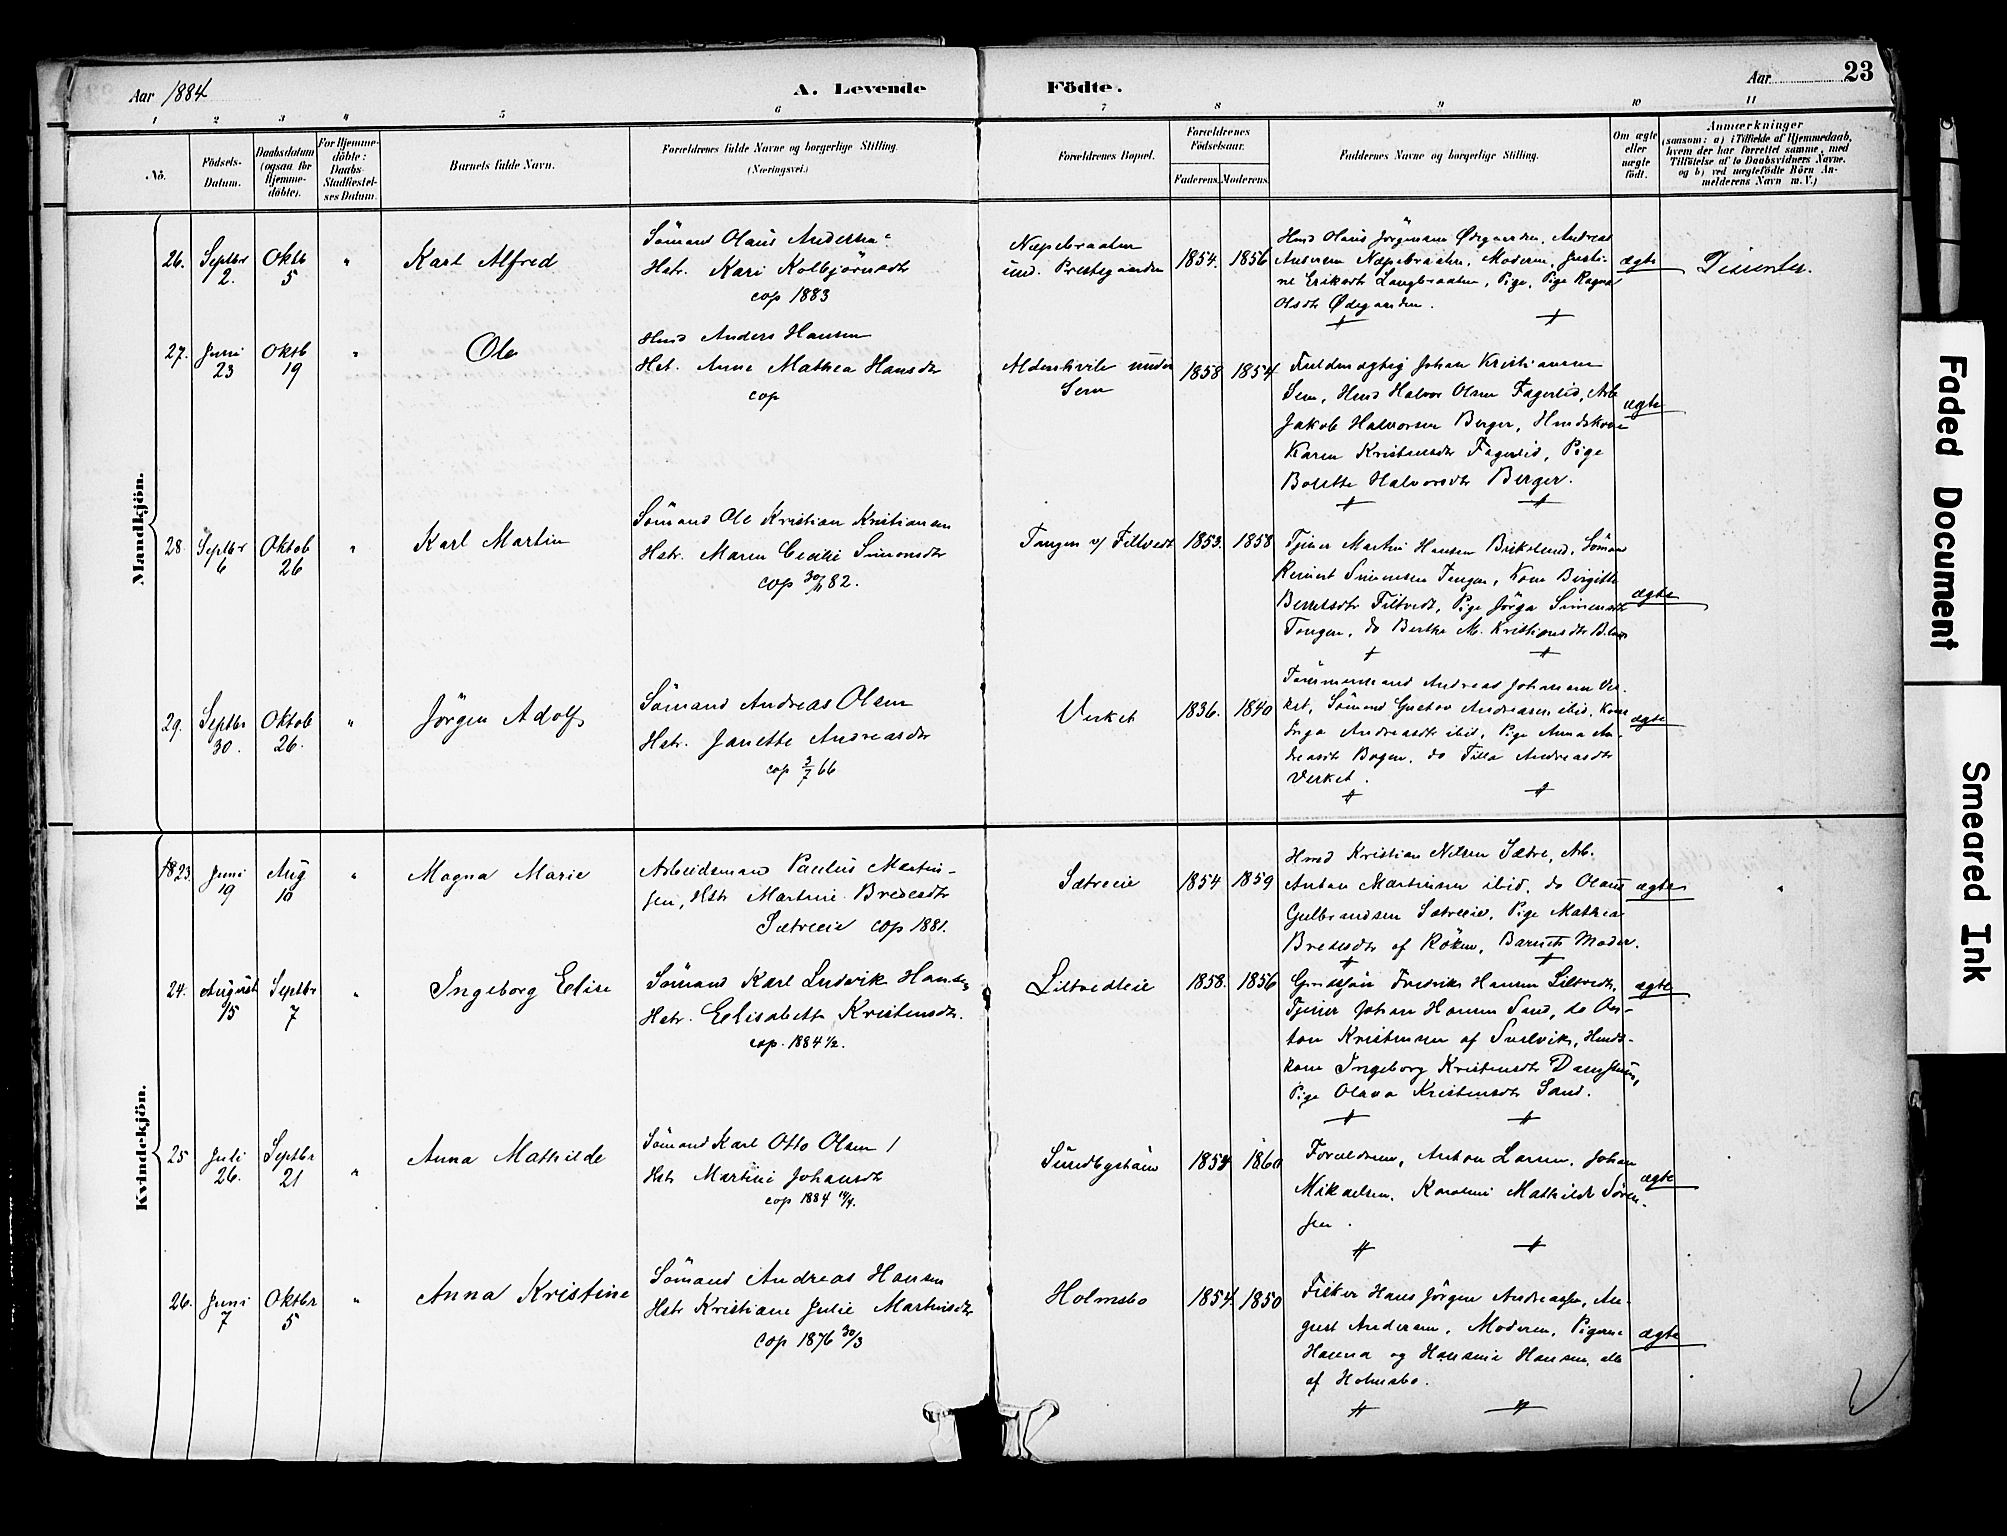 Aar 1884
A. Levende
Födte.
Aar
23
1 2 3 4 5 6 7 8 9 10 11
No.
Födsels-
Datum.
Daabsdatum
(ogsaa for
Hjemme-
döbte).
For Hjemme-
döbte:
Daabs-
Stadfæstel-
ses Datum.
Barnets fulde Navn.
Forældrenes fulde Navne og borgerlige Stilling.
(Næringsvei.)
Forældrenes Bopæl.
Forældrenes
Födselsaar.
Faderens. Moderens.
Faddernes Navne og borgerlige Stilling.
Om ægte
eller
uægte
født.
Anmærkninger
(saasom: a) i Tilfælde af Hjemmedaab,
hvem der har forrettet samme, med
Tilföielse af to Daabsvidners Navne,
og b) ved uægtefödte Börn An-
melderens Navn m. V.)
Mandkjön.
26. Septbr 2. Oktb 5 " Karl Alfred
Sömand Olaus
Hstr. Kari Kolbjörnsdtr
cop 1883
Næpebraaten
und. Prestegaarden
1854. 1856
Hmd Olaus Jörgensen Ødegaarden, Andreas
Andersen Næpebraaten, Moderen, Justi-
ne Eriksdtr Langbraaten, Pige, Pige Ragna
Olsdtr Ødegaarden.
ægte
Dissenter.
27. Juni 23 Oktb 19 " Ole
Hmd Anders Hansen
Hst. Anne Mathea Hansdtr
cop
Aldershvile under
Sem
1858 1854
Fuldmægtig Johan Kristiansen
Sem, Hmd Halvor Olsen Fagerlid, Arb
Jakob Halvorsen Berger, Hmdskone
Karen Kristensdtr Fagerlid, Pige
Bolette Halvorsdtr Berger.
ægte
28. Septbr 6 Oktob 26 " Karl Martin
Sömand Ole Kristian Kristiansen
Hstr. Maren Cecilie Simonsdtr
cop 30/11 82.
Tangen v/ Filtvedt
1853. 1858
Tjener Martin Hansen Sömand
Simensen Tangen, Kone Birgitte
Filtvedt, Pige Jörga Simensdtr
Tangen, do Berthe M. Kristiansdtr
ægte
29. Septbr 30. Oktob 26. " Jörgen Adolf
Sömand Andreas Olsen
Hstr. Janette Andreasdtr
cop 3/7 66
Verket
1836. 1840
Tömmermand Andreas Johansen Ver-
ket, Sömand Gustav Andreasen ibid, Kone
Inga Andreasdtr ibid, Pige Anna An-
dreasdtr Bogen, do Tilla Andreasdtr
Verket.
ægte
Kvindekjön.
23. Juni 19 Aug 10 " Magna Marie
Arbeidsmand Paulus Martin-
sen, Hstr Martine Bredesdtr
Sætreeie cop 1881.
Sætreeie
1854 1859
Hmd Kristian Nilsen Sætre, Arb.
Anton Martinsen ibid, do Olaus
Gulbrandsen Sætreeie, Pige Mathea
Bredesdtr af Röken, Barnets Moder.
ægte
24. August 15 Septbr 7 " Ingeborg Elise
Sömand Karl Ludvik Hansen
Hstr. Elisabeth Kristensdtr.
cop. 1884 1/2.
Liltvedteie
1858. 1856
Fredrik Hansen Liltvedt,
Tjener Johan Hansen Sand, do An-
ton Kristensen af Svelvik, Hmds-
kone Ingeborg Kristensdtr
Pige Olava Kristensdtr Sand.
ægte
25 Juli 26. Septbr 21 " Anna Mathilde
Sömand Karl Otto Olsen
Hstr Martine Johansdtr
cop 1884
Sundbyhavn
1854 1860
Forældrene, Anton Larsen, Johan
Mikaelsen, Karoline Mathilde Sören-
sen.
ægte
26. Juni 7 Oktbr 5 " Anna Kristine
Sömand Andreas Hansen
Hstr Kristiane Julie Martinsdtr
cop 1876 30/3
Holmsbo
1854 1850
Fisker Hans Jörgen Andreassen, Au-
gust Andersen, Moderen, Pigerne
Hanna og Hansine Hansen, alle
af Holmsbo.
ægte
Faded Document
Smeared Ink